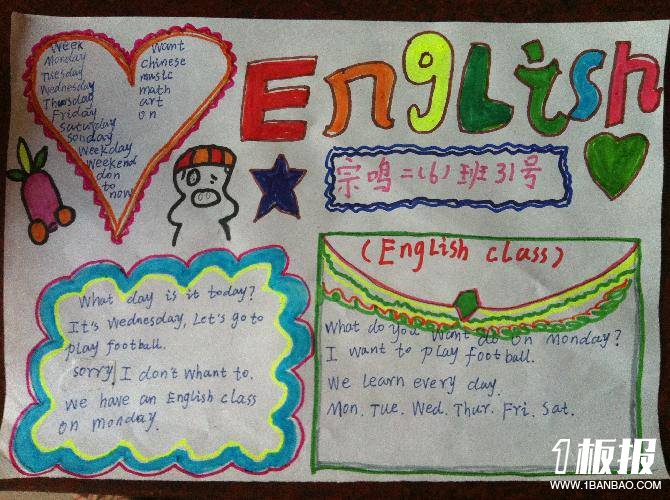 English
宗鸣 二(6)班 31号
Week
Monday
Tuesday
Wednesday
Thursday
Friday
Saturday
Sonday
Weekday
Weekend
don
to
now
Want
Chinese
music
math
art
on
What day is it today?
It's Wednesday, Let's go to
play football.
sorry I don't whant to.
We have an English class
on monday.
(English class)
What do you want do on monday?
I want to play football.
We learn every day.
Mon. Tue. Wed. Thur. Fri. Sat.
1板报
WWW.1BANBAO.COM